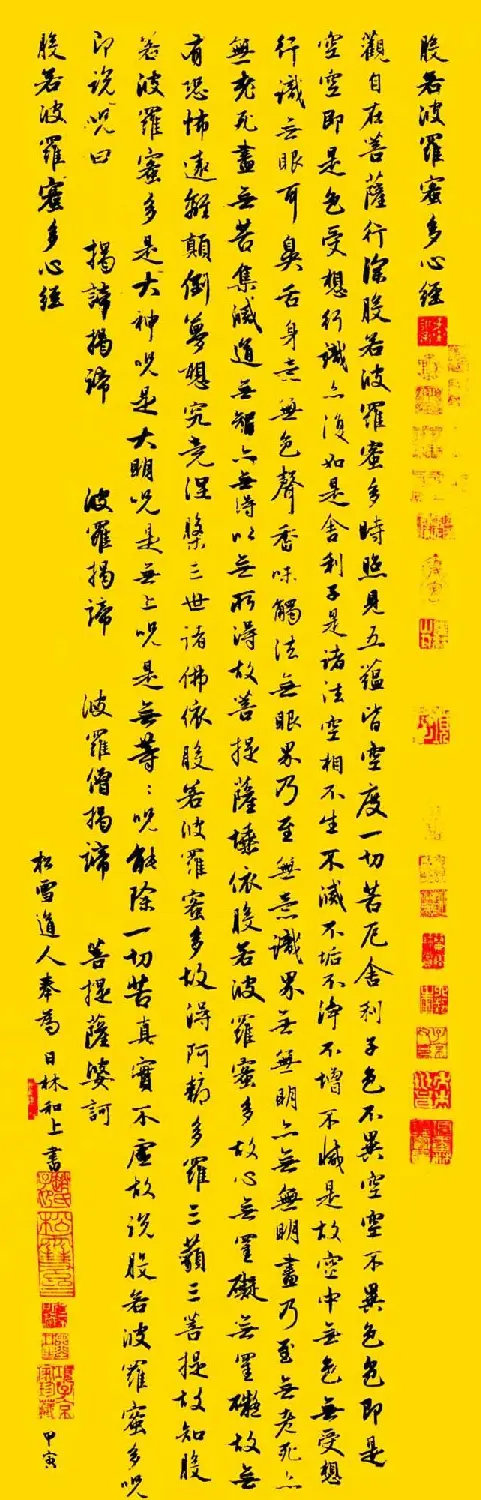 般若波羅蜜多心經
觀自在菩薩行深般若波羅蜜多時照見五蘊皆空度一切苦厄舍利子色不異空空不異色色即是
空空即是色受想行識亦復如是舍利子是諸法空相不生不滅不垢不淨不增不減是故空中無色無受想
行識无眼耳鼻舌身意無色聲香味觸法無眼界乃至無意識界无無明亦无無明盡乃至無老死亦
無老死盡無苦集滅道无智亦無得以無所得故菩提薩埵依般若波羅蜜多故心無罣礙無罣礙故無
有恐怖遠離顛倒夢想究竟涅槃三世諸佛依般若波羅蜜多故得阿耨多羅三藐三菩提故知般
若波羅蜜多是大神呪是大明呪是無上呪是無等〻呪能除一切苦真實不虛故說般若波羅蜜多呪
即說呪曰 揭諦揭諦 波羅揭諦 波羅僧揭諦 菩提薩婆訶
般若波羅蜜多心經
松雪道人奉為日林和上書
趙氏子昂
項子京家珍藏
甲寅